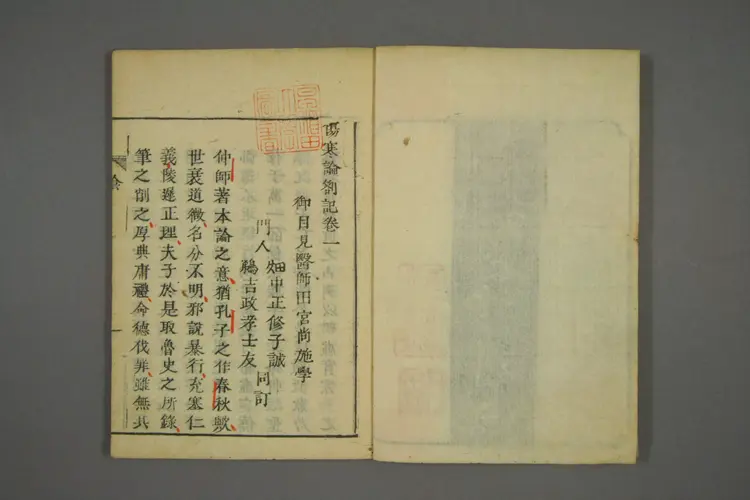 傷寒論劄記卷一
御目見醫師田宮尚施學
門人
畑中正修子誠
鵜吉政孝士友
同訂
仲師著本論之意猶孔子之作春秋歟
世衰道微名分不明邪說暴行充塞仁
義陵遲正理夫子於是取魯史之所錄
筆之削之厚典庸禮命德伐罪雖無其